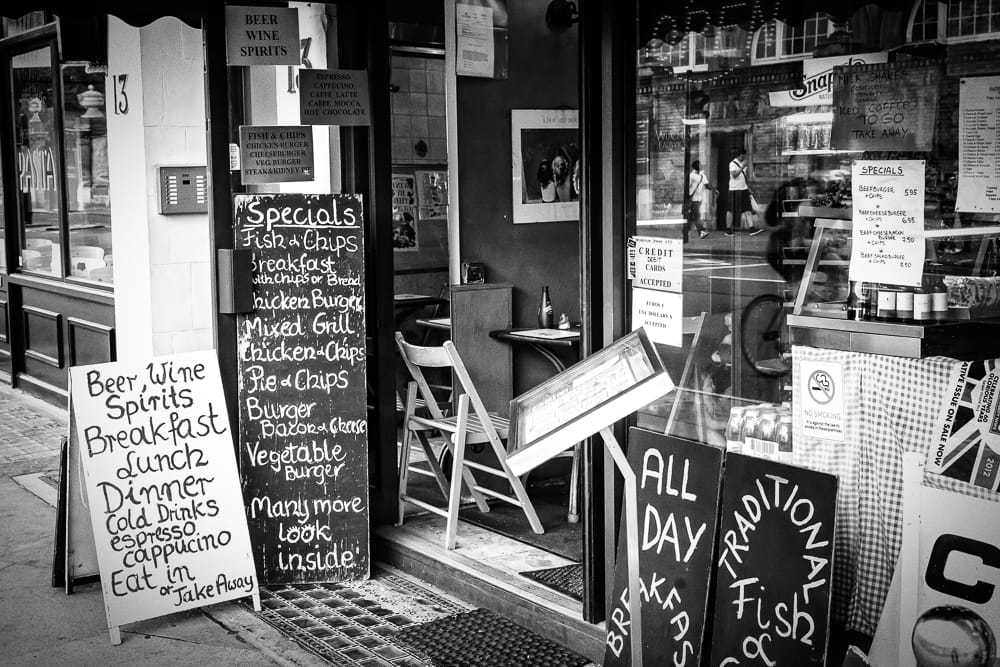 BEER
WINE
SPIRITS
ESPRESSO
CAPPUCINO
CAFFE LATTE
CAFFE MOCCA
HOT CHOCOLATE
FISH & CHIPS
CHICKEN·BURGER
CHEESEBURGER
VEG·BURGER
STEAK&KIDNEY
13
PASTA
Specials
Fish & Chips
Breakfast
with chips or Bread
chicken Burger
Mixed Grill
chicken & chips
Pie & Chips
Burger
Bacon & cheese
Vegetable
Burger
Many more
look
inside
Beer, Wine
Spirits
Breakfast
Lunch
Dinner
Cold Drinks
espresso
cappucino
Eat in
or Take Away
Snapple
MILK SHAKES
ICED COFFEES
TO GO
TAKE AWAY
SPECIALS
BEEFBURGER 5.95
+ CHIPS
BEEF CHEESEBURGER
+ CHIPS 6.50
+ CHIPS 7.50
+ CHIPS 7.50
CREDIT
DEBIT
CARDS
ACCEPTED
EURO'S
US DOLLARS
ACCEPTED
NO SMOKING
CELEBRATING 60
GLORIOUS YEARS
2012
NATIVE
ON SALE NOW
ALL
DAY
BREAKFAS
TRADITIONAL
Fish
&
C